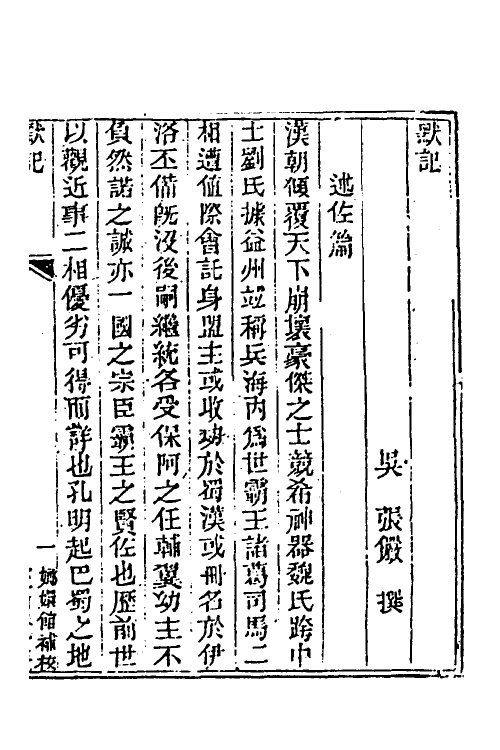 默記
吳 張儼 撰
述佐篇
漢朝傾覆天下崩壞豪傑之士競希神器魏氏跨中
土劉氏據益州竝稱兵海內爲世霸王諸葛司馬二
相遭値際會託身盟主或收功於蜀漢或冊名於伊
洛丕備旣沒後嗣繼統各受保阿之任輔翼幼主不
負然諾之誠亦一國之宗臣霸王之賢佐也歷前世
以觀近事二相優劣可得而詳也孔明起巴蜀之地
默記
一
嫏嬛館補校